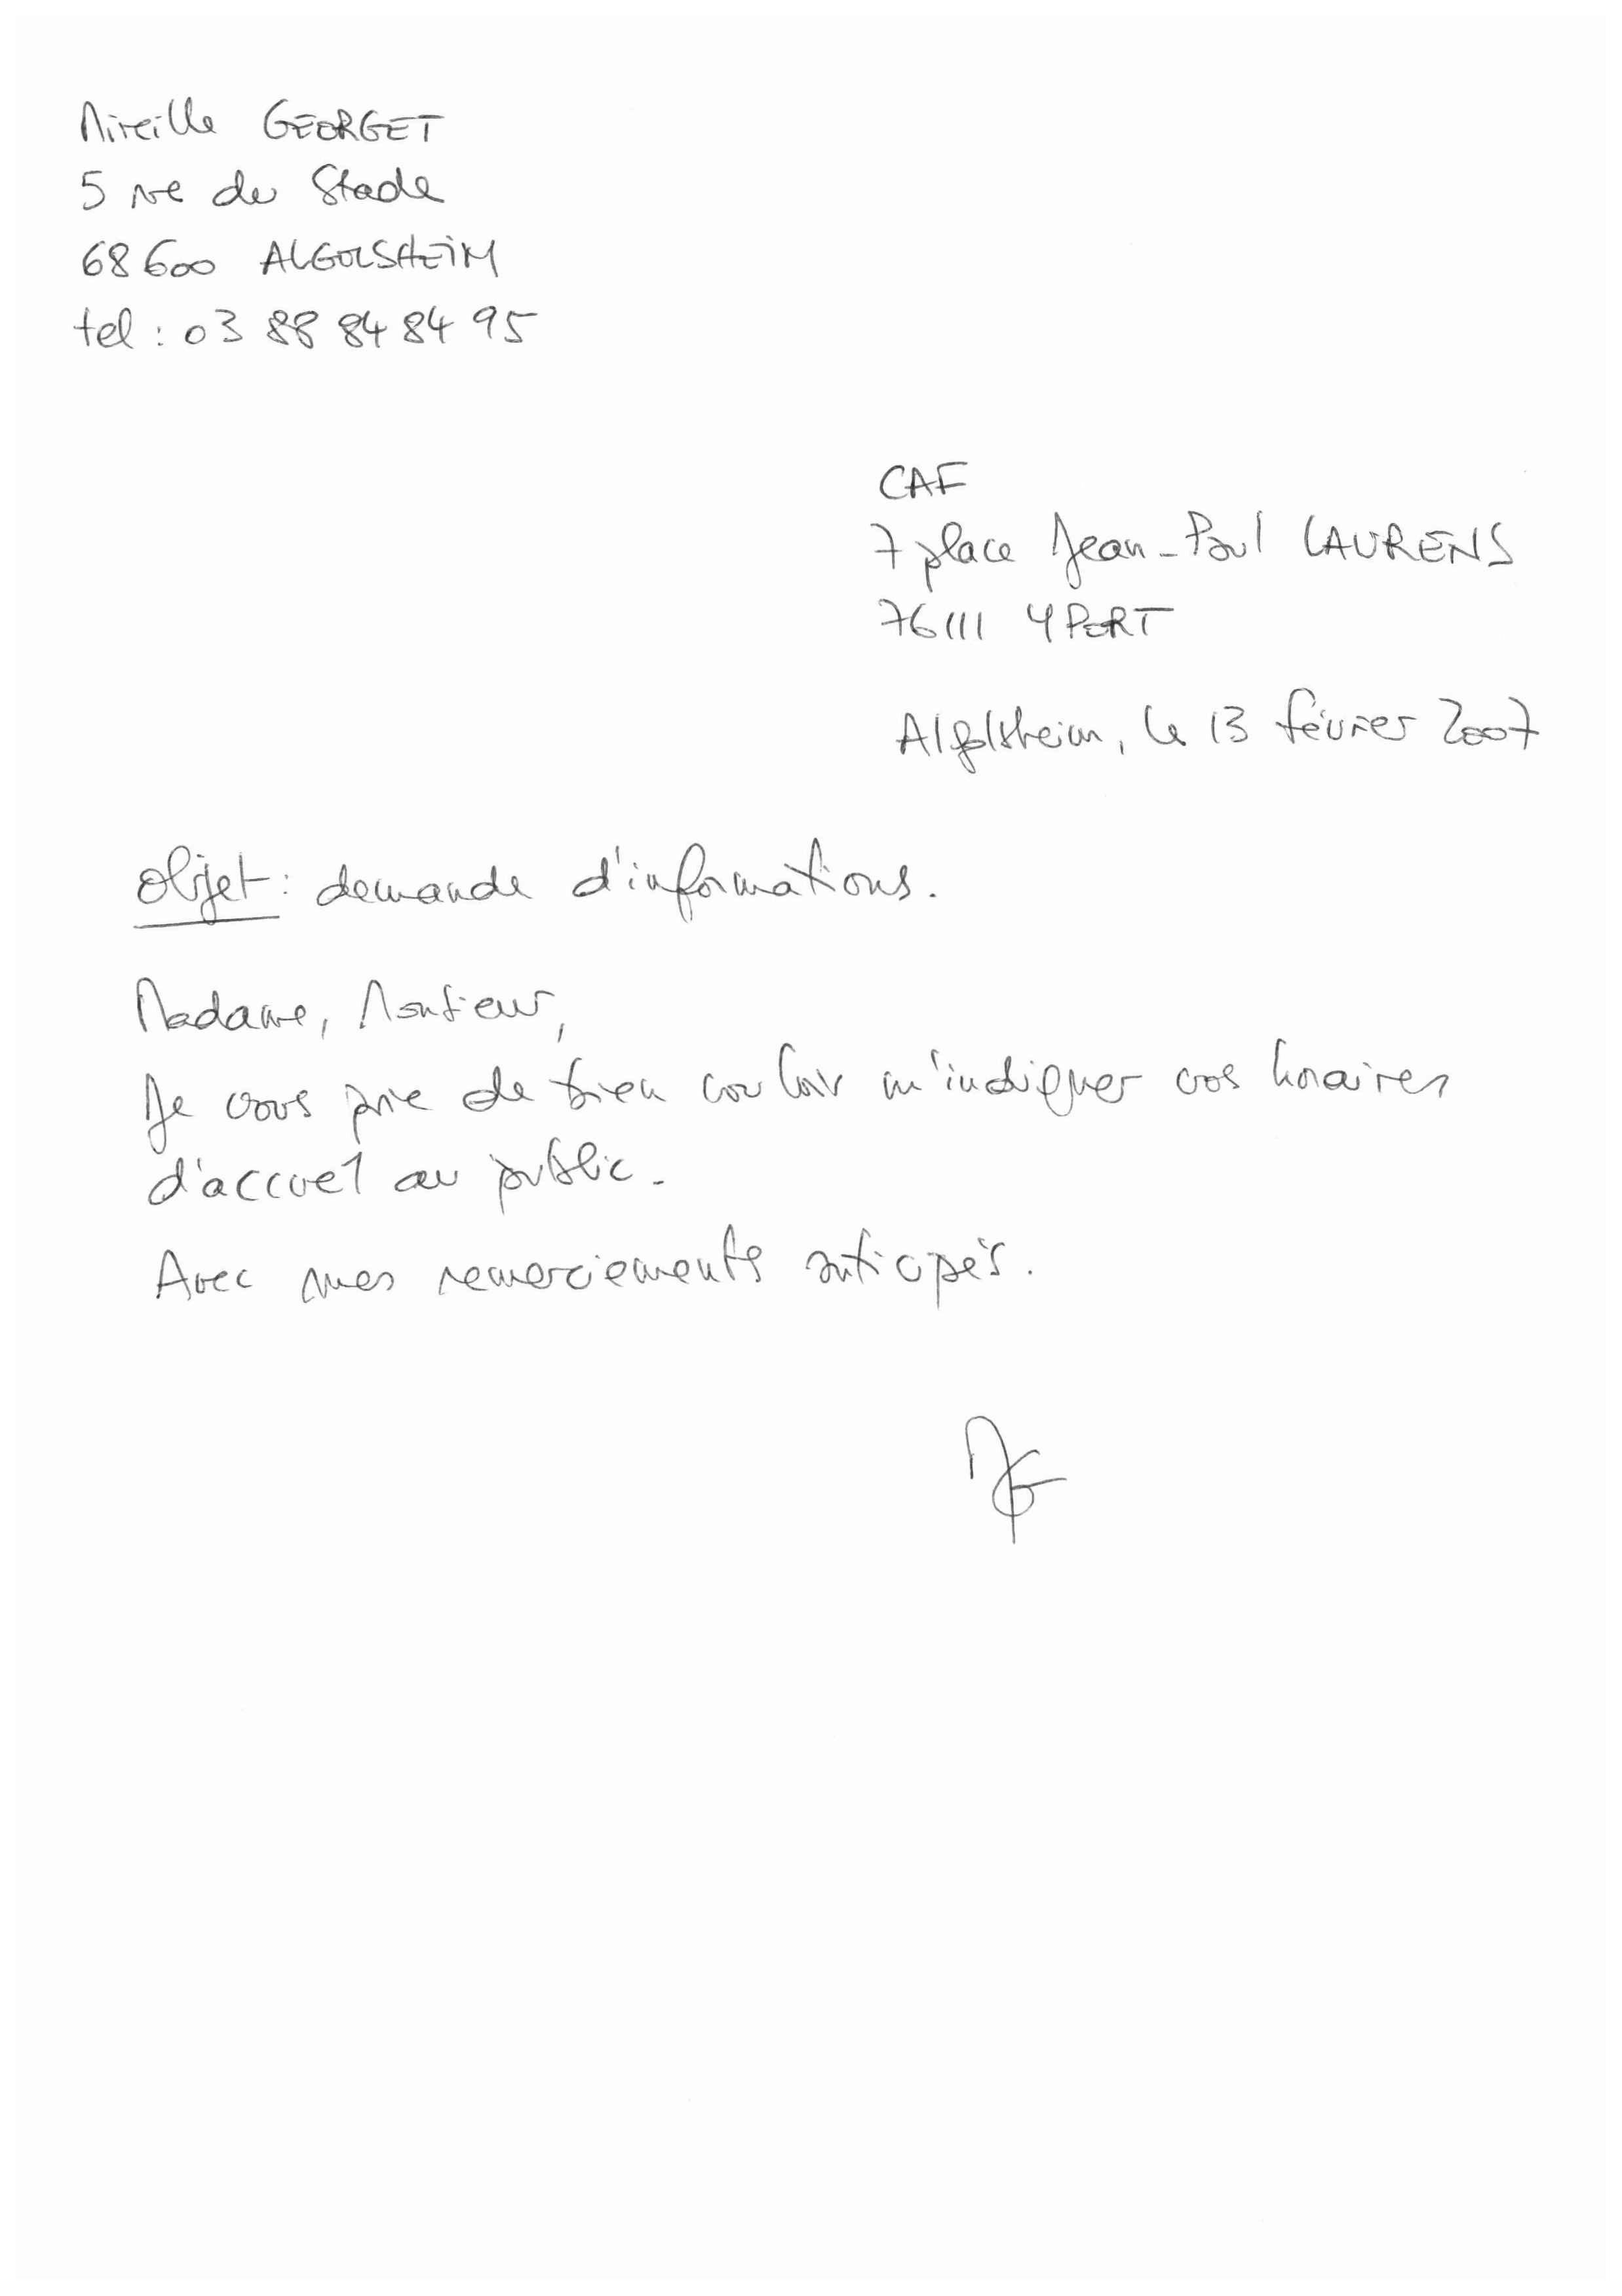 Mireille GEORGET
5 rue du Stade
68600 ALGOLSHEIM
tel : 03 88 84 84 95
CAF
7 place Jean-Paul LAURENS
76111 YPORT
Algolsheim, le 13 février 2007
Objet : demande d'informations.
Madame, Monsieur,
Je vous prie de bien vouloir m'indiquer vos horaires
d'accueil au public.
Avec mes remerciements anticipés.
MG